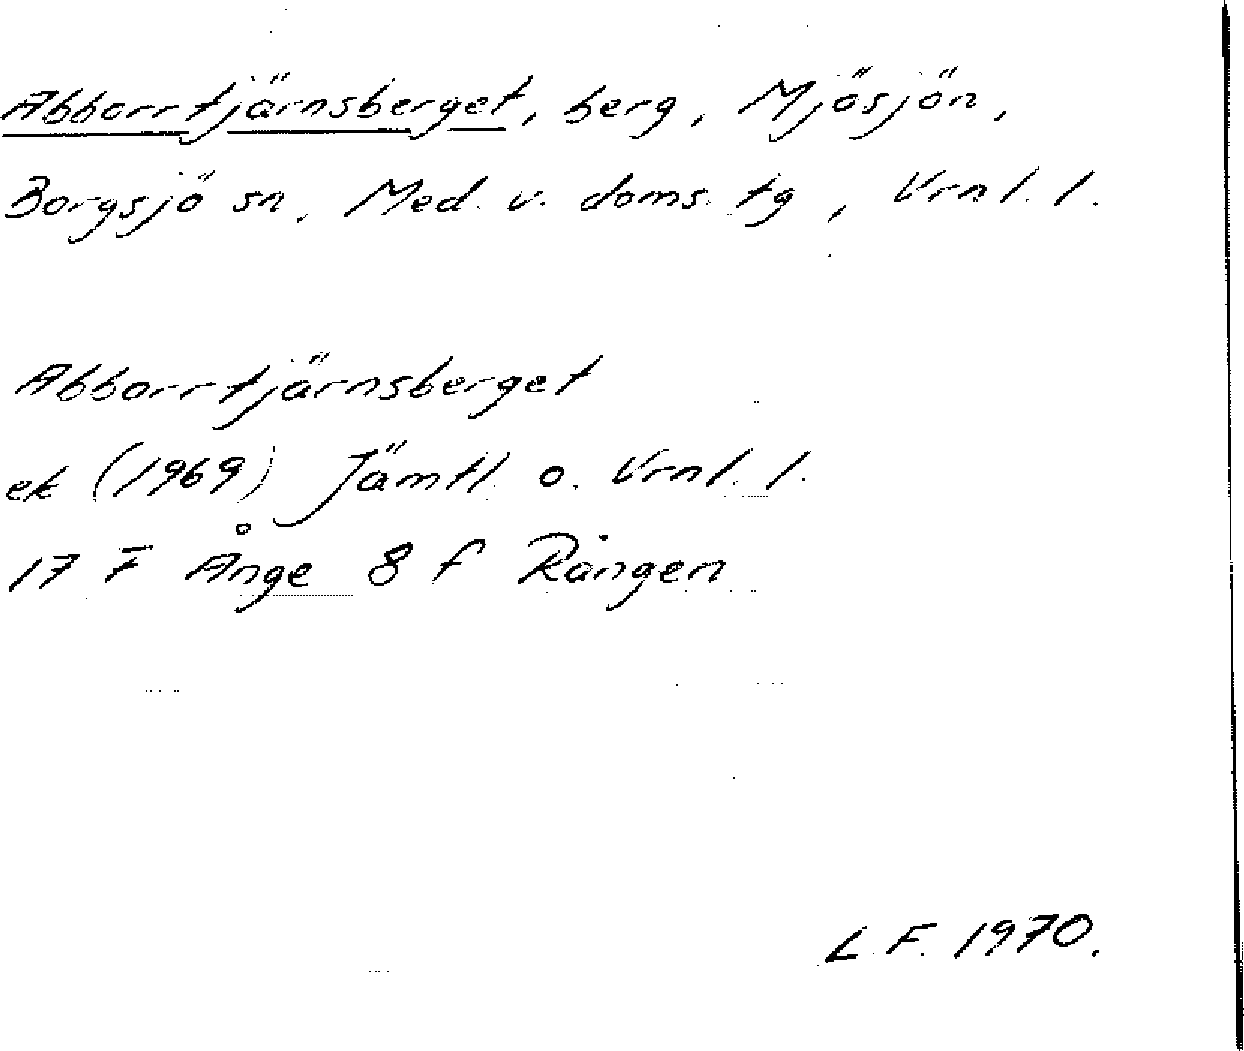 Abborrtjärnsberget, berg, Mjösjön,
Borgsjö sn, Med. v. doms. tg, Vrnl. l.
Abborrtjärnsberget
ek (1969) Jämtl. o. Vrnl. l.
17 F Ånge 8 f Rången
L. F. 1970.